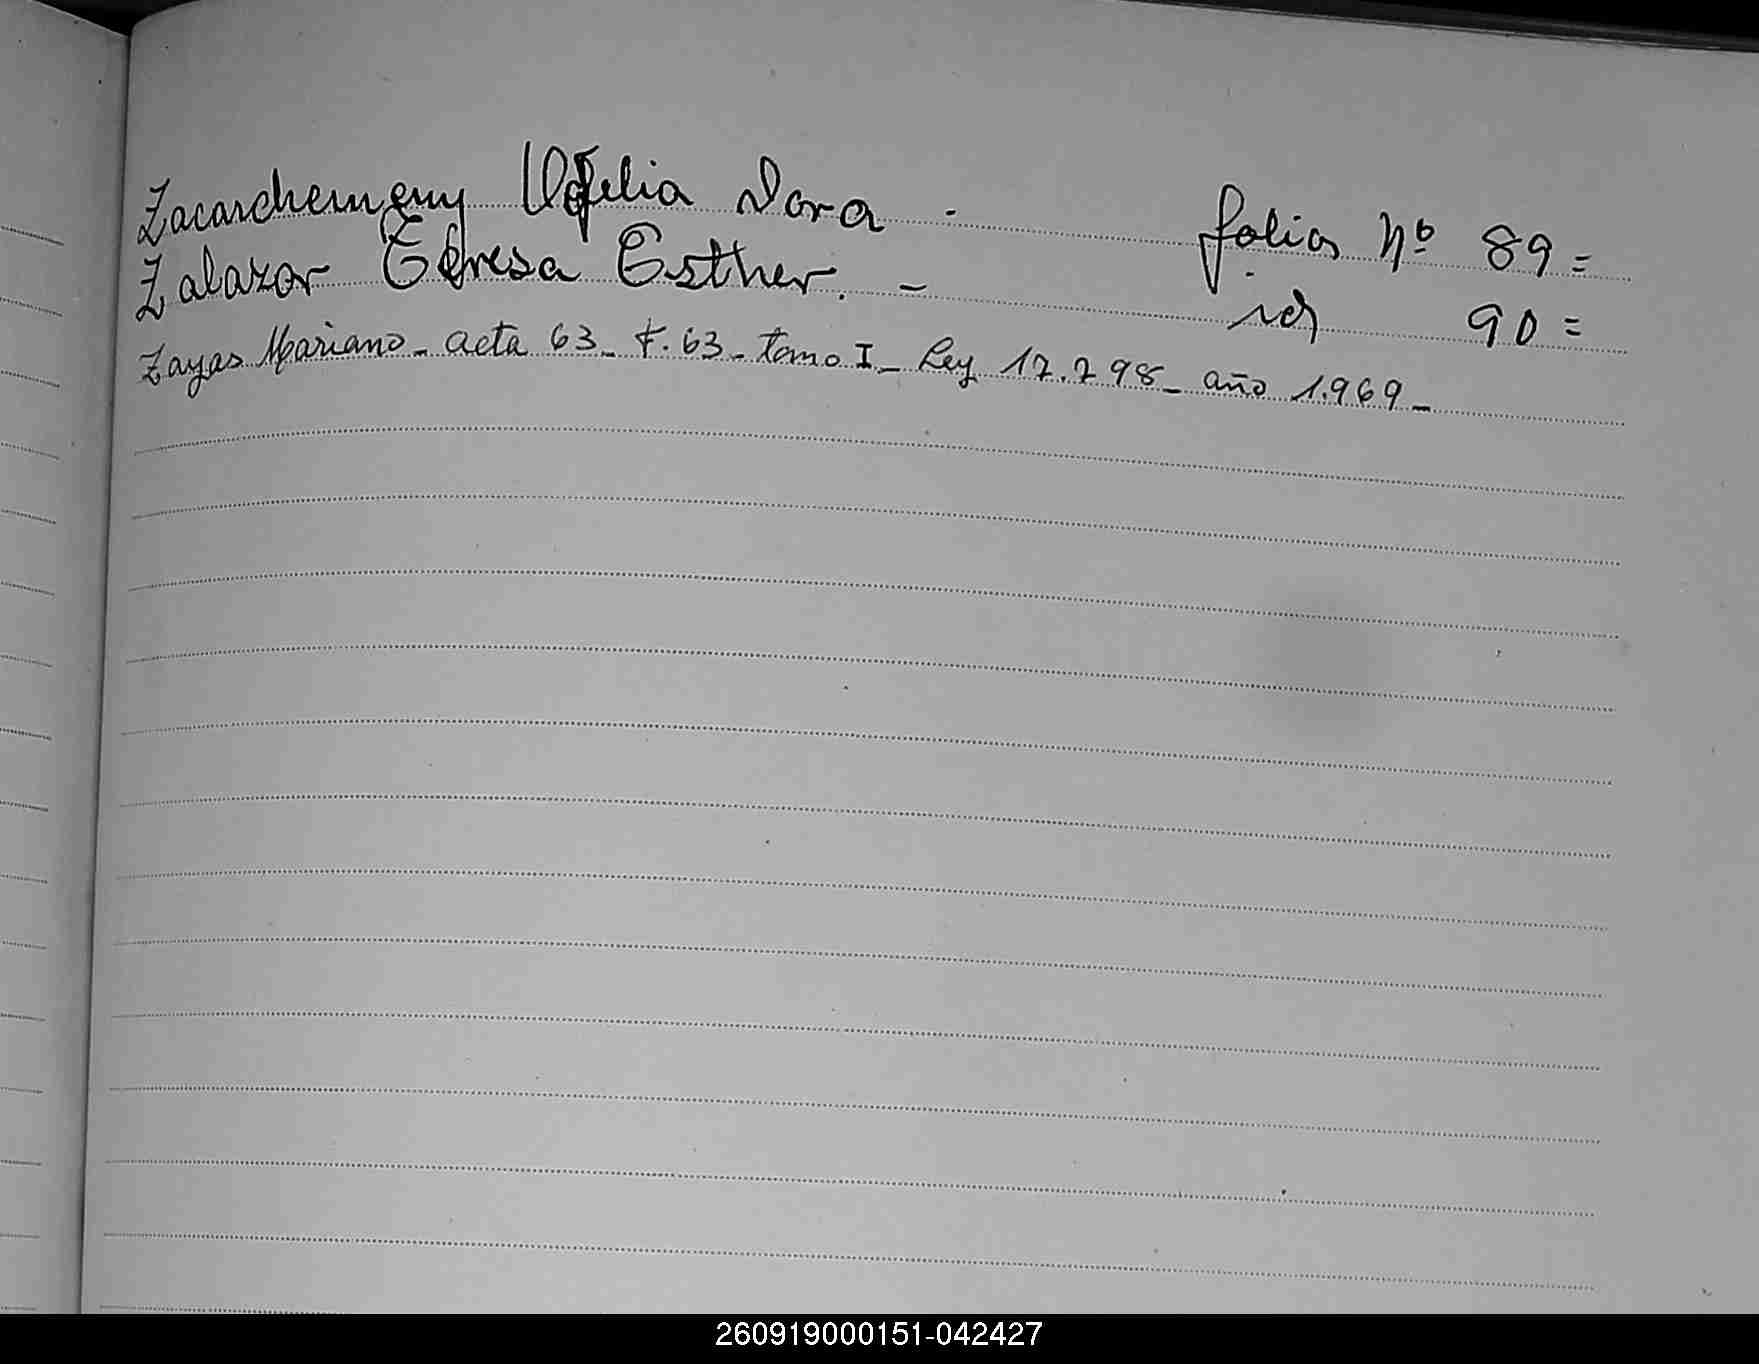 Zacarchemeny Ofelia Dora - folios Nº 89=
Zalazar Teresa Esther. - id 90=
Zayas Mariano - acta 63 - F. 63 - tomo I - Ley 17.298 - año 1.969 -
260919000151-042427